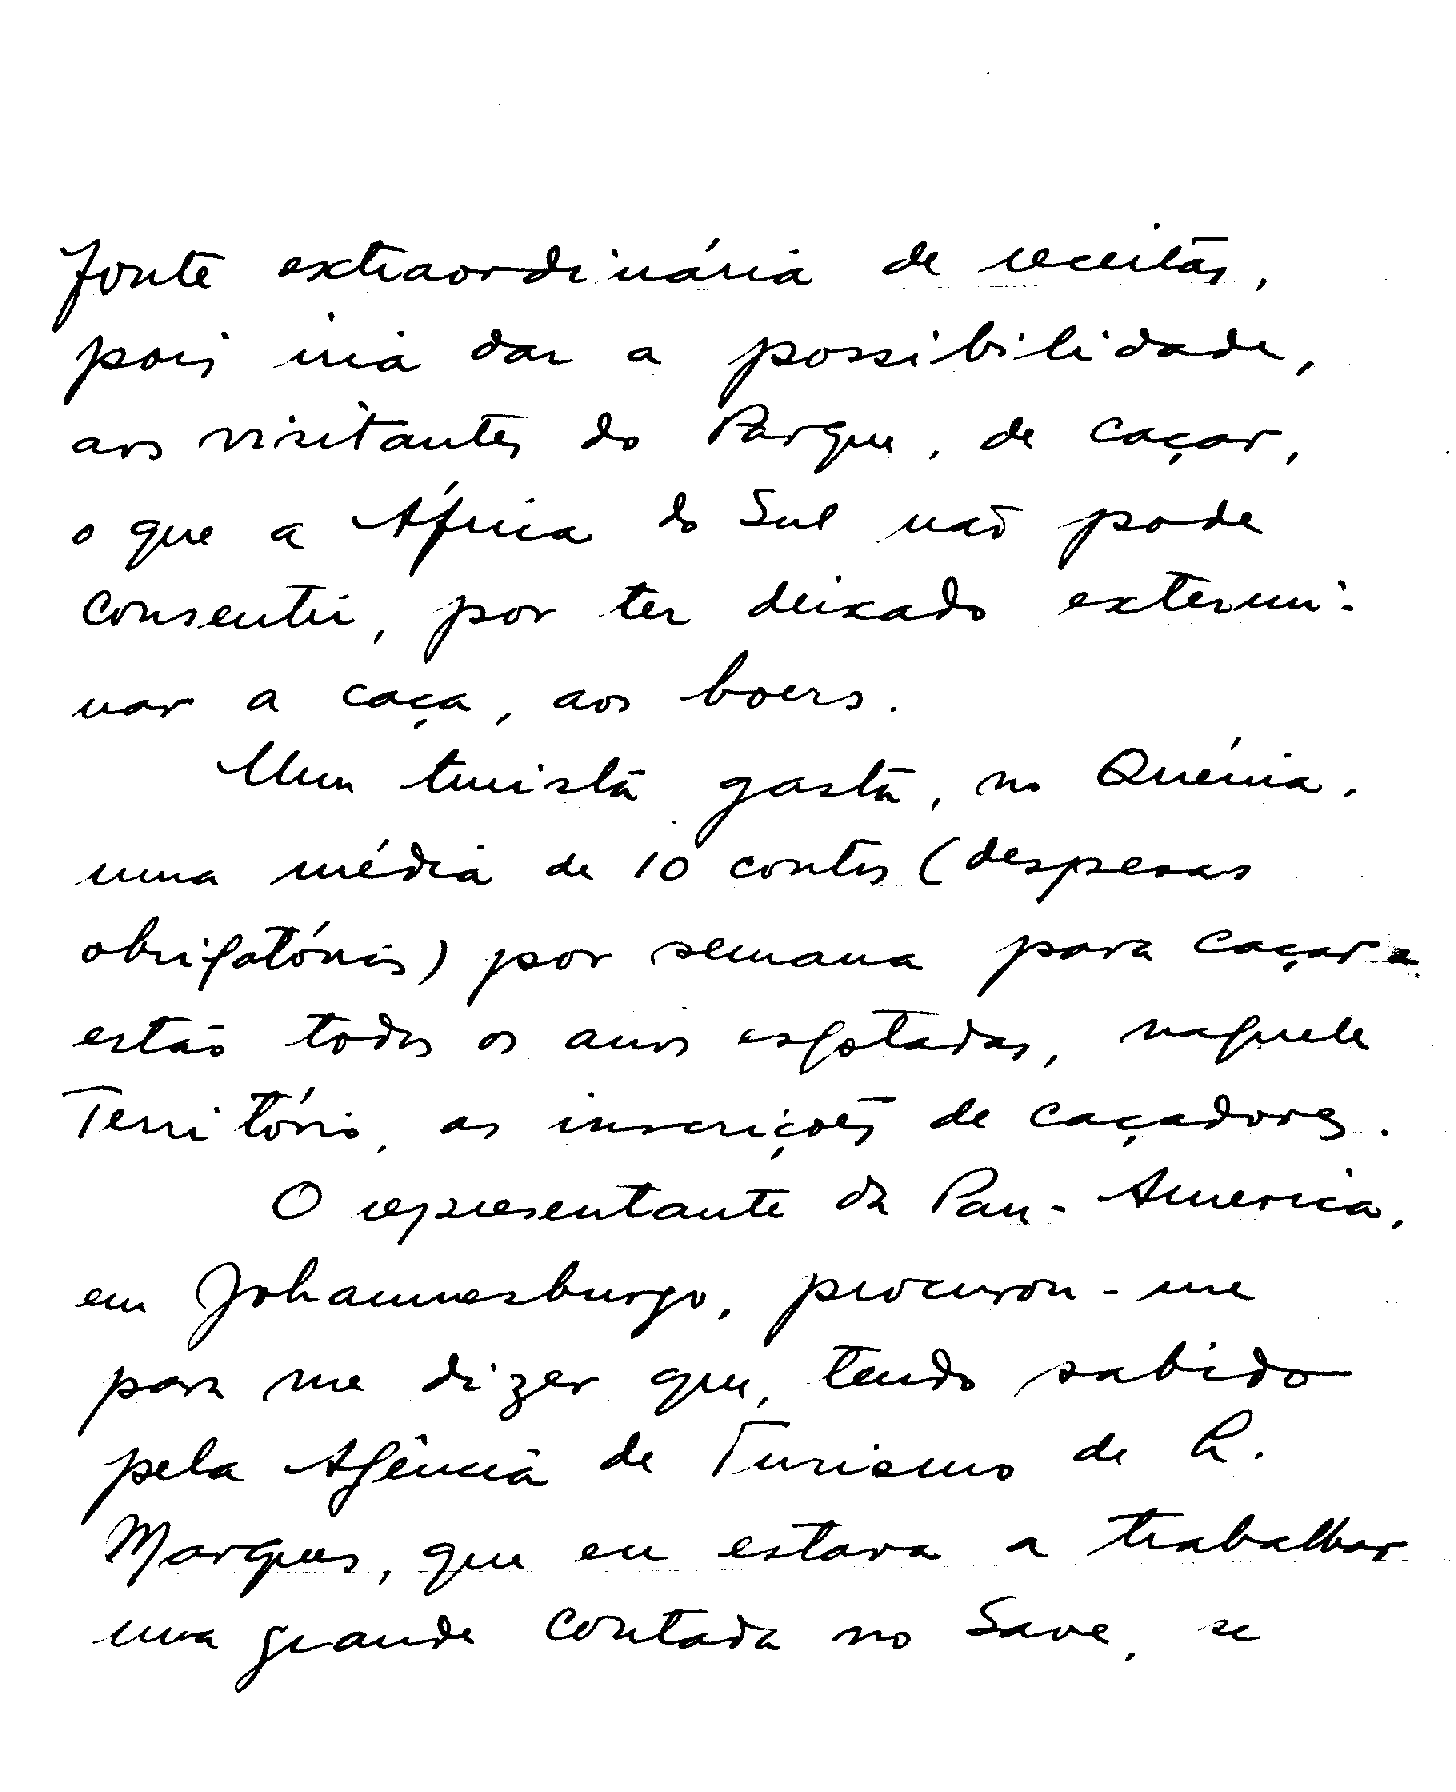 fonte extraordinária de receitas,
pois iria dar a possibilidade,
aos visitantes do Parque, de caçar,
o que a África do Sul não pode
consentir, por ter deixado extermi-
nar a caça, aos boers.
Um turista gasta, no Quénia,
uma média de 10 contos (despesas
obrigatórias) por semana para caçar e
estão todos os anos esgotadas, naquele
Território, as inscrições de caçadores.
O representante da Pan-America,
em Johannesburgo, procurou-me
para me dizer que, tendo sabido
pela Agência de Turismo de L.
Marques, que eu estava a trabalhar
uma grande coutada no Save, se